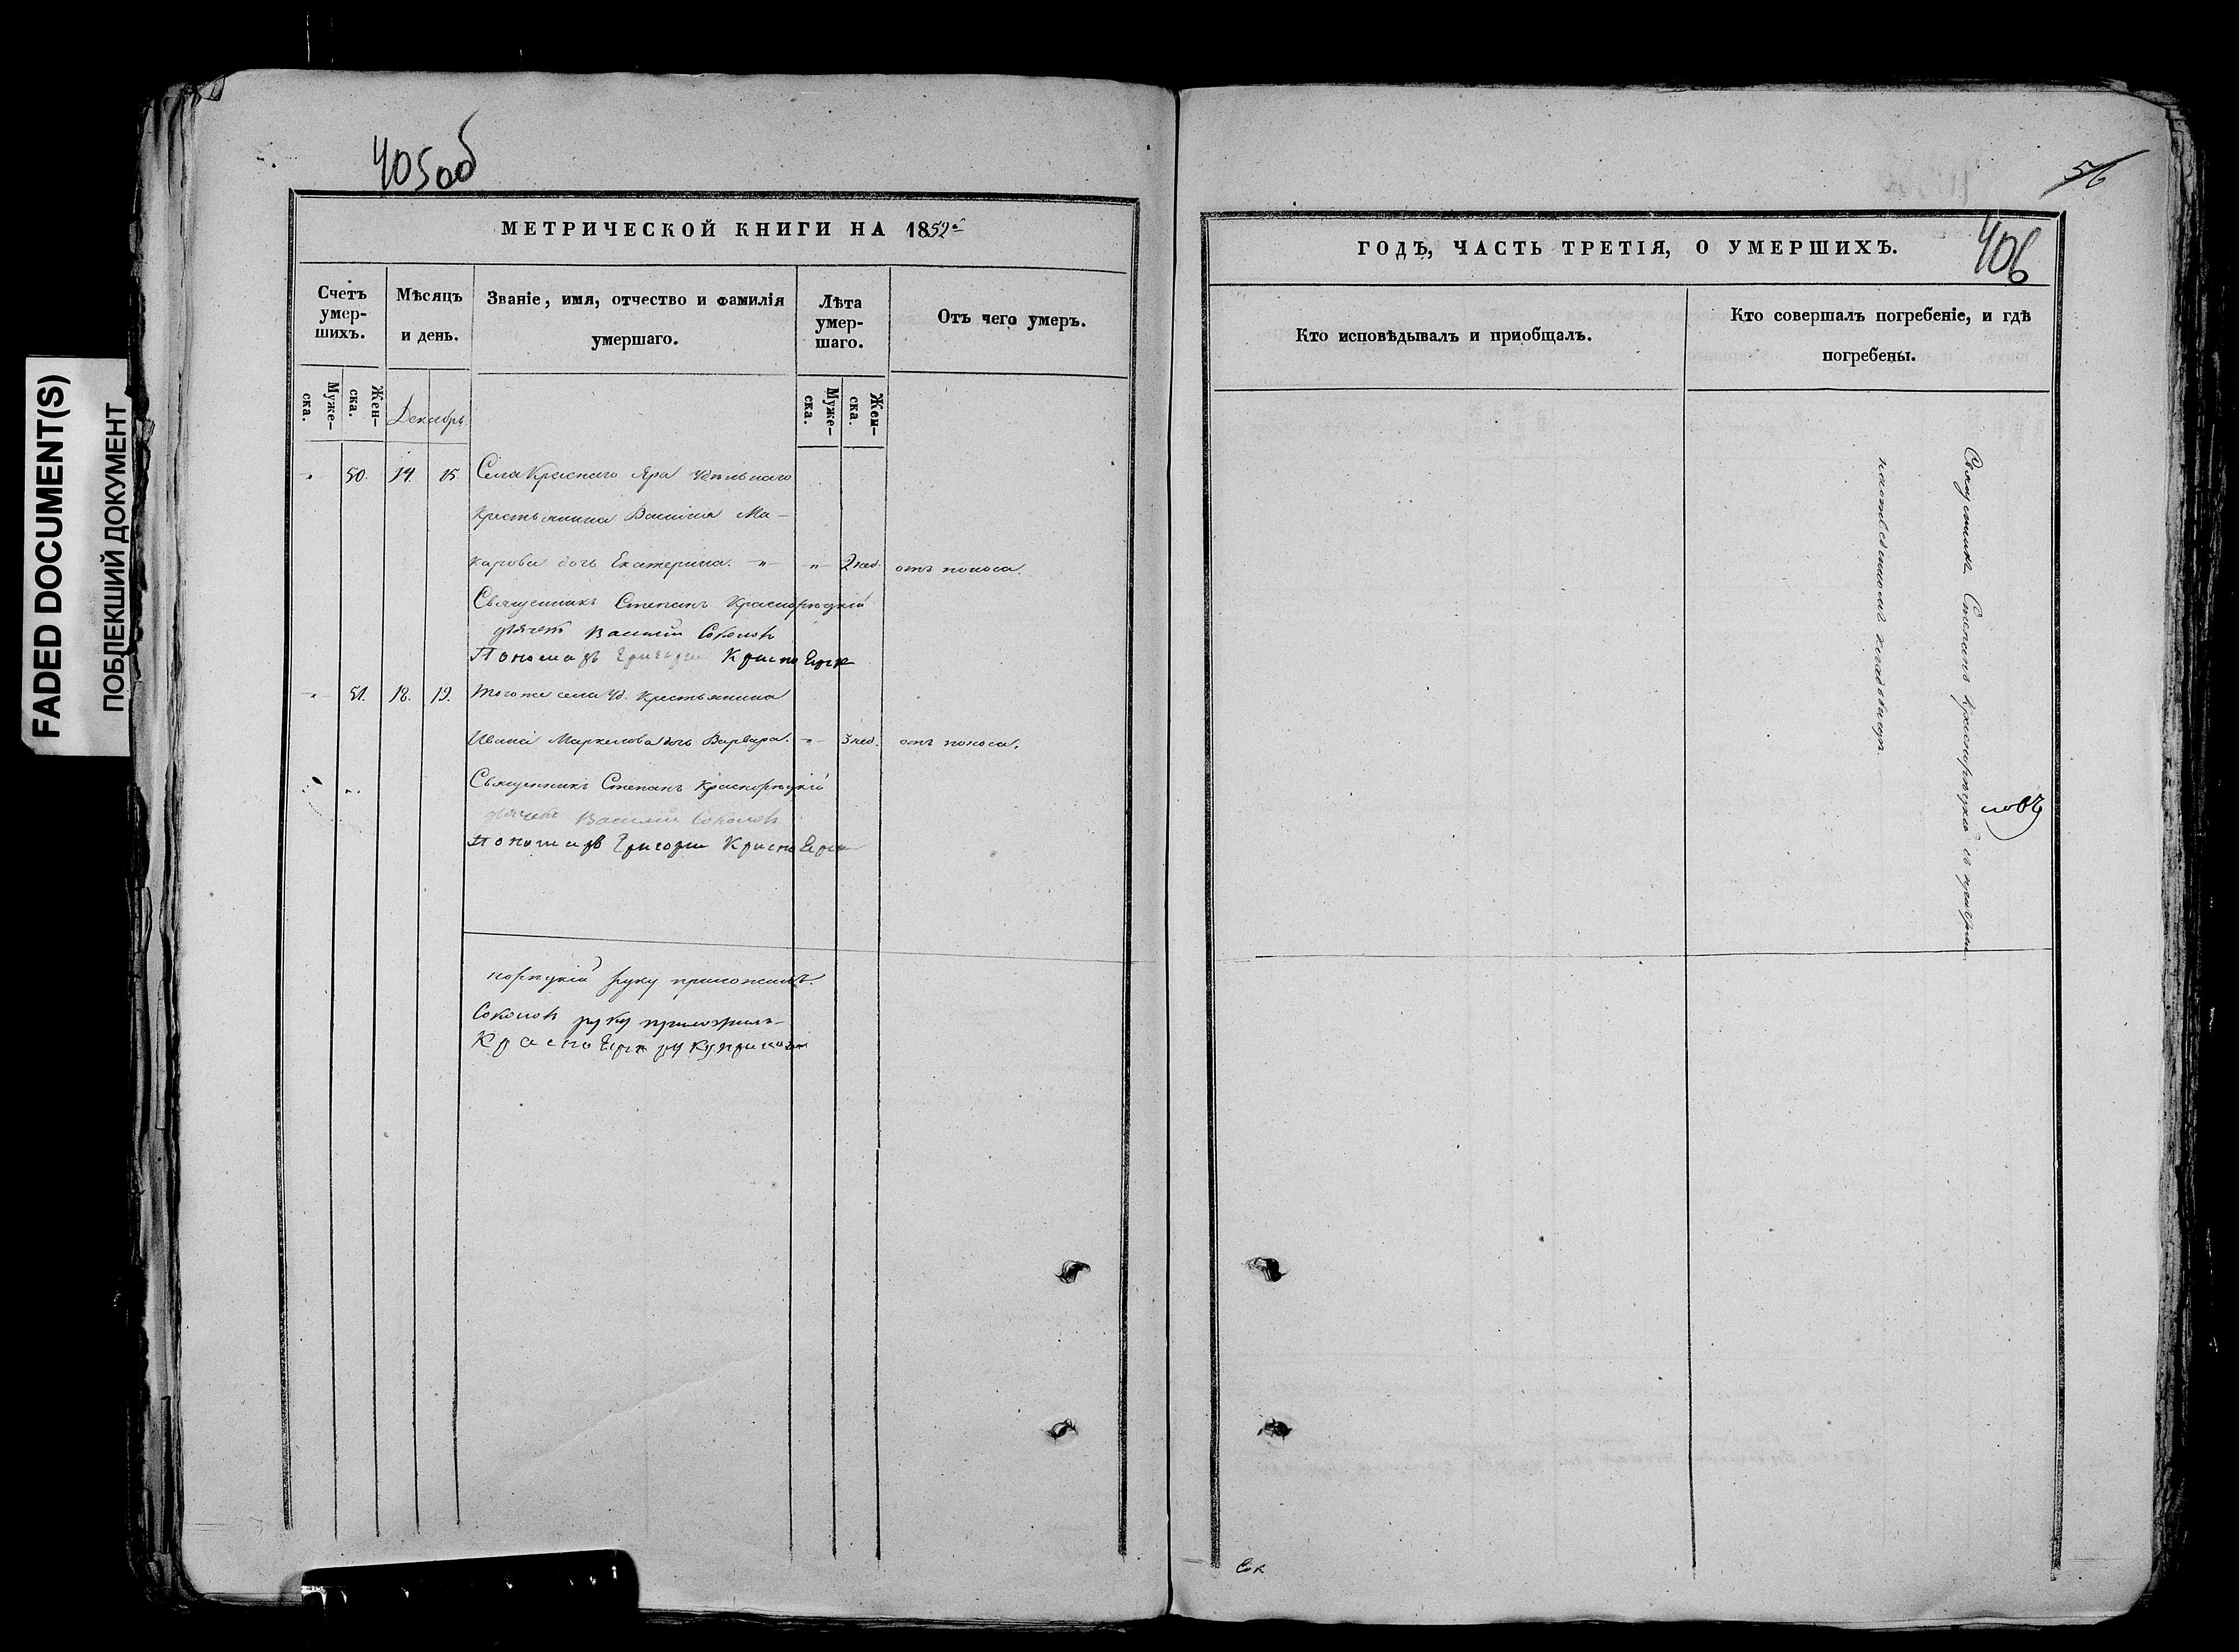 FADED DOCUMENT(S)
ПОБЛЕКШИЙ ДОКУМЕНТ
405об
МЕТРИЧЕСКОЙ КНИГИ НА 1852
Счетъ умер-
шихъ.
Муже-
ска.
Жен-
ска.
Мѣсяцъ
и день.
Декабрь
Званіе, имя, отчество и фамилія
умершаго.
Лѣта
умер-
шаго.
Муже-
ска.
Жен-
ска.
Отъ чего умеръ.
50. 14. 15. Села Краснаго Яра удѣльнаго
крестьянина Василія Ма-
карова дочь Екатерина. „ 2 нед. отъ поноса.
Священникъ Степанъ Красно
дьячекъ Василій Соколовъ
Пономарь Григорій
„ 51. 18. 19. Тогоже села уд. крестьянина
Ивана Маркелова дочь Варвара. „ 3 нед. отъ поноса.
Священникъ Степанъ Красно
дьячекъ Василій Соколовъ
Пономарь Григорій
руку приложилъ.
Соколовъ руку приложилъ
руку приложилъ
5/6
406
ГОДЪ, ЧАСТЬ ТРЕТІЯ, О УМЕРШИХЪ.
Кто исповѣдывалъ и приобщалъ.
Кто совершалъ погребеніе, и гдѣ
погребены.
Священникъ Степанъ съ причтомъ
кладбищѣ.
ловъ
Сок